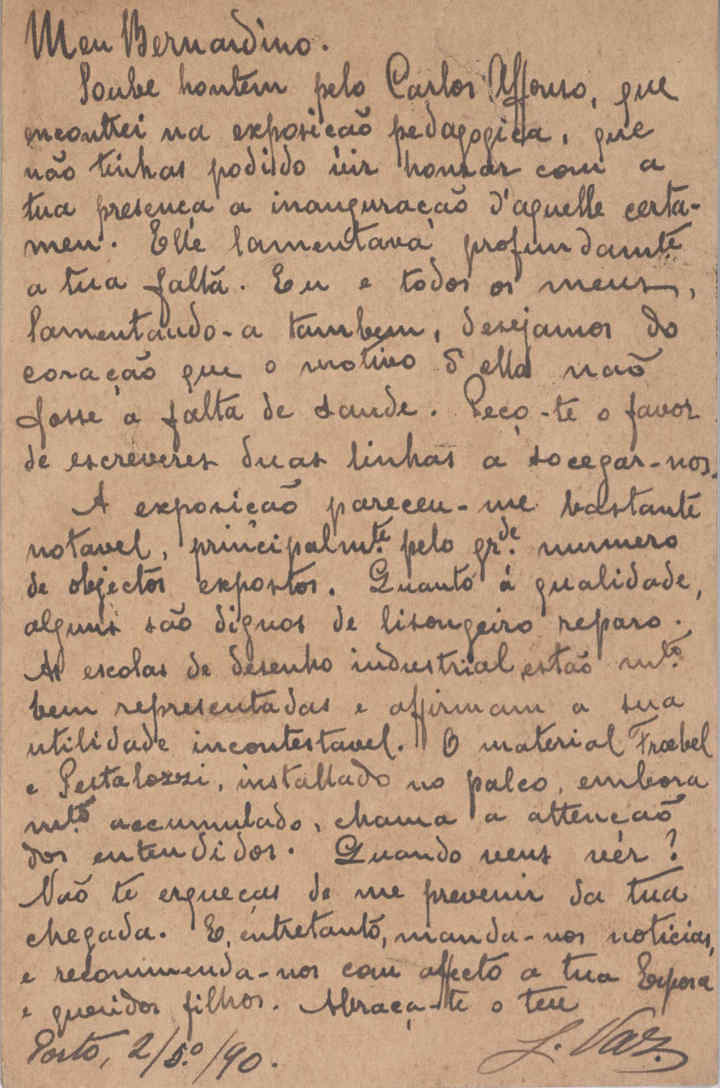 Meu Bernardino.
Soube hontem pelo Carlos Affonso, que
encontrei na exposição pedagogica, que
não tinhas podido vir honrar com a
tua presença a inauguração d'aquelle certa-
men. Elle lamentava profundamte
a tua falta. Eu e todos os meus,
lamentando-a tambem, desejamos do
coração que o motivo d'ella não
fosse a falta de saude. Peço-te o favor
de escreveres duas linhas a socegar-nos.
A exposição pareceu-me bastante
notavel, principalmte pelo grde numero
de objectos expostos. Quanto á qualidade,
alguns são dignos de lisongeiro reparo.
As escolas de desenho industrial estão mto
bem representadas e affirmam a sua
utilidade incontestavel. O material Froebel
e Pestalozzi, installado no palco, embora
mto accumulado, chama a attenção
dos entendidos. Quando vens vêr?
Não te esqueças de me prevenir da tua
chegada. E, entretanto, manda-nos noticias,
e recommenda-nos com affecto a tua Esposa
e queridos filhos. Abraça-te o teu
Porto, 2/5.º/90. L. Vaz.